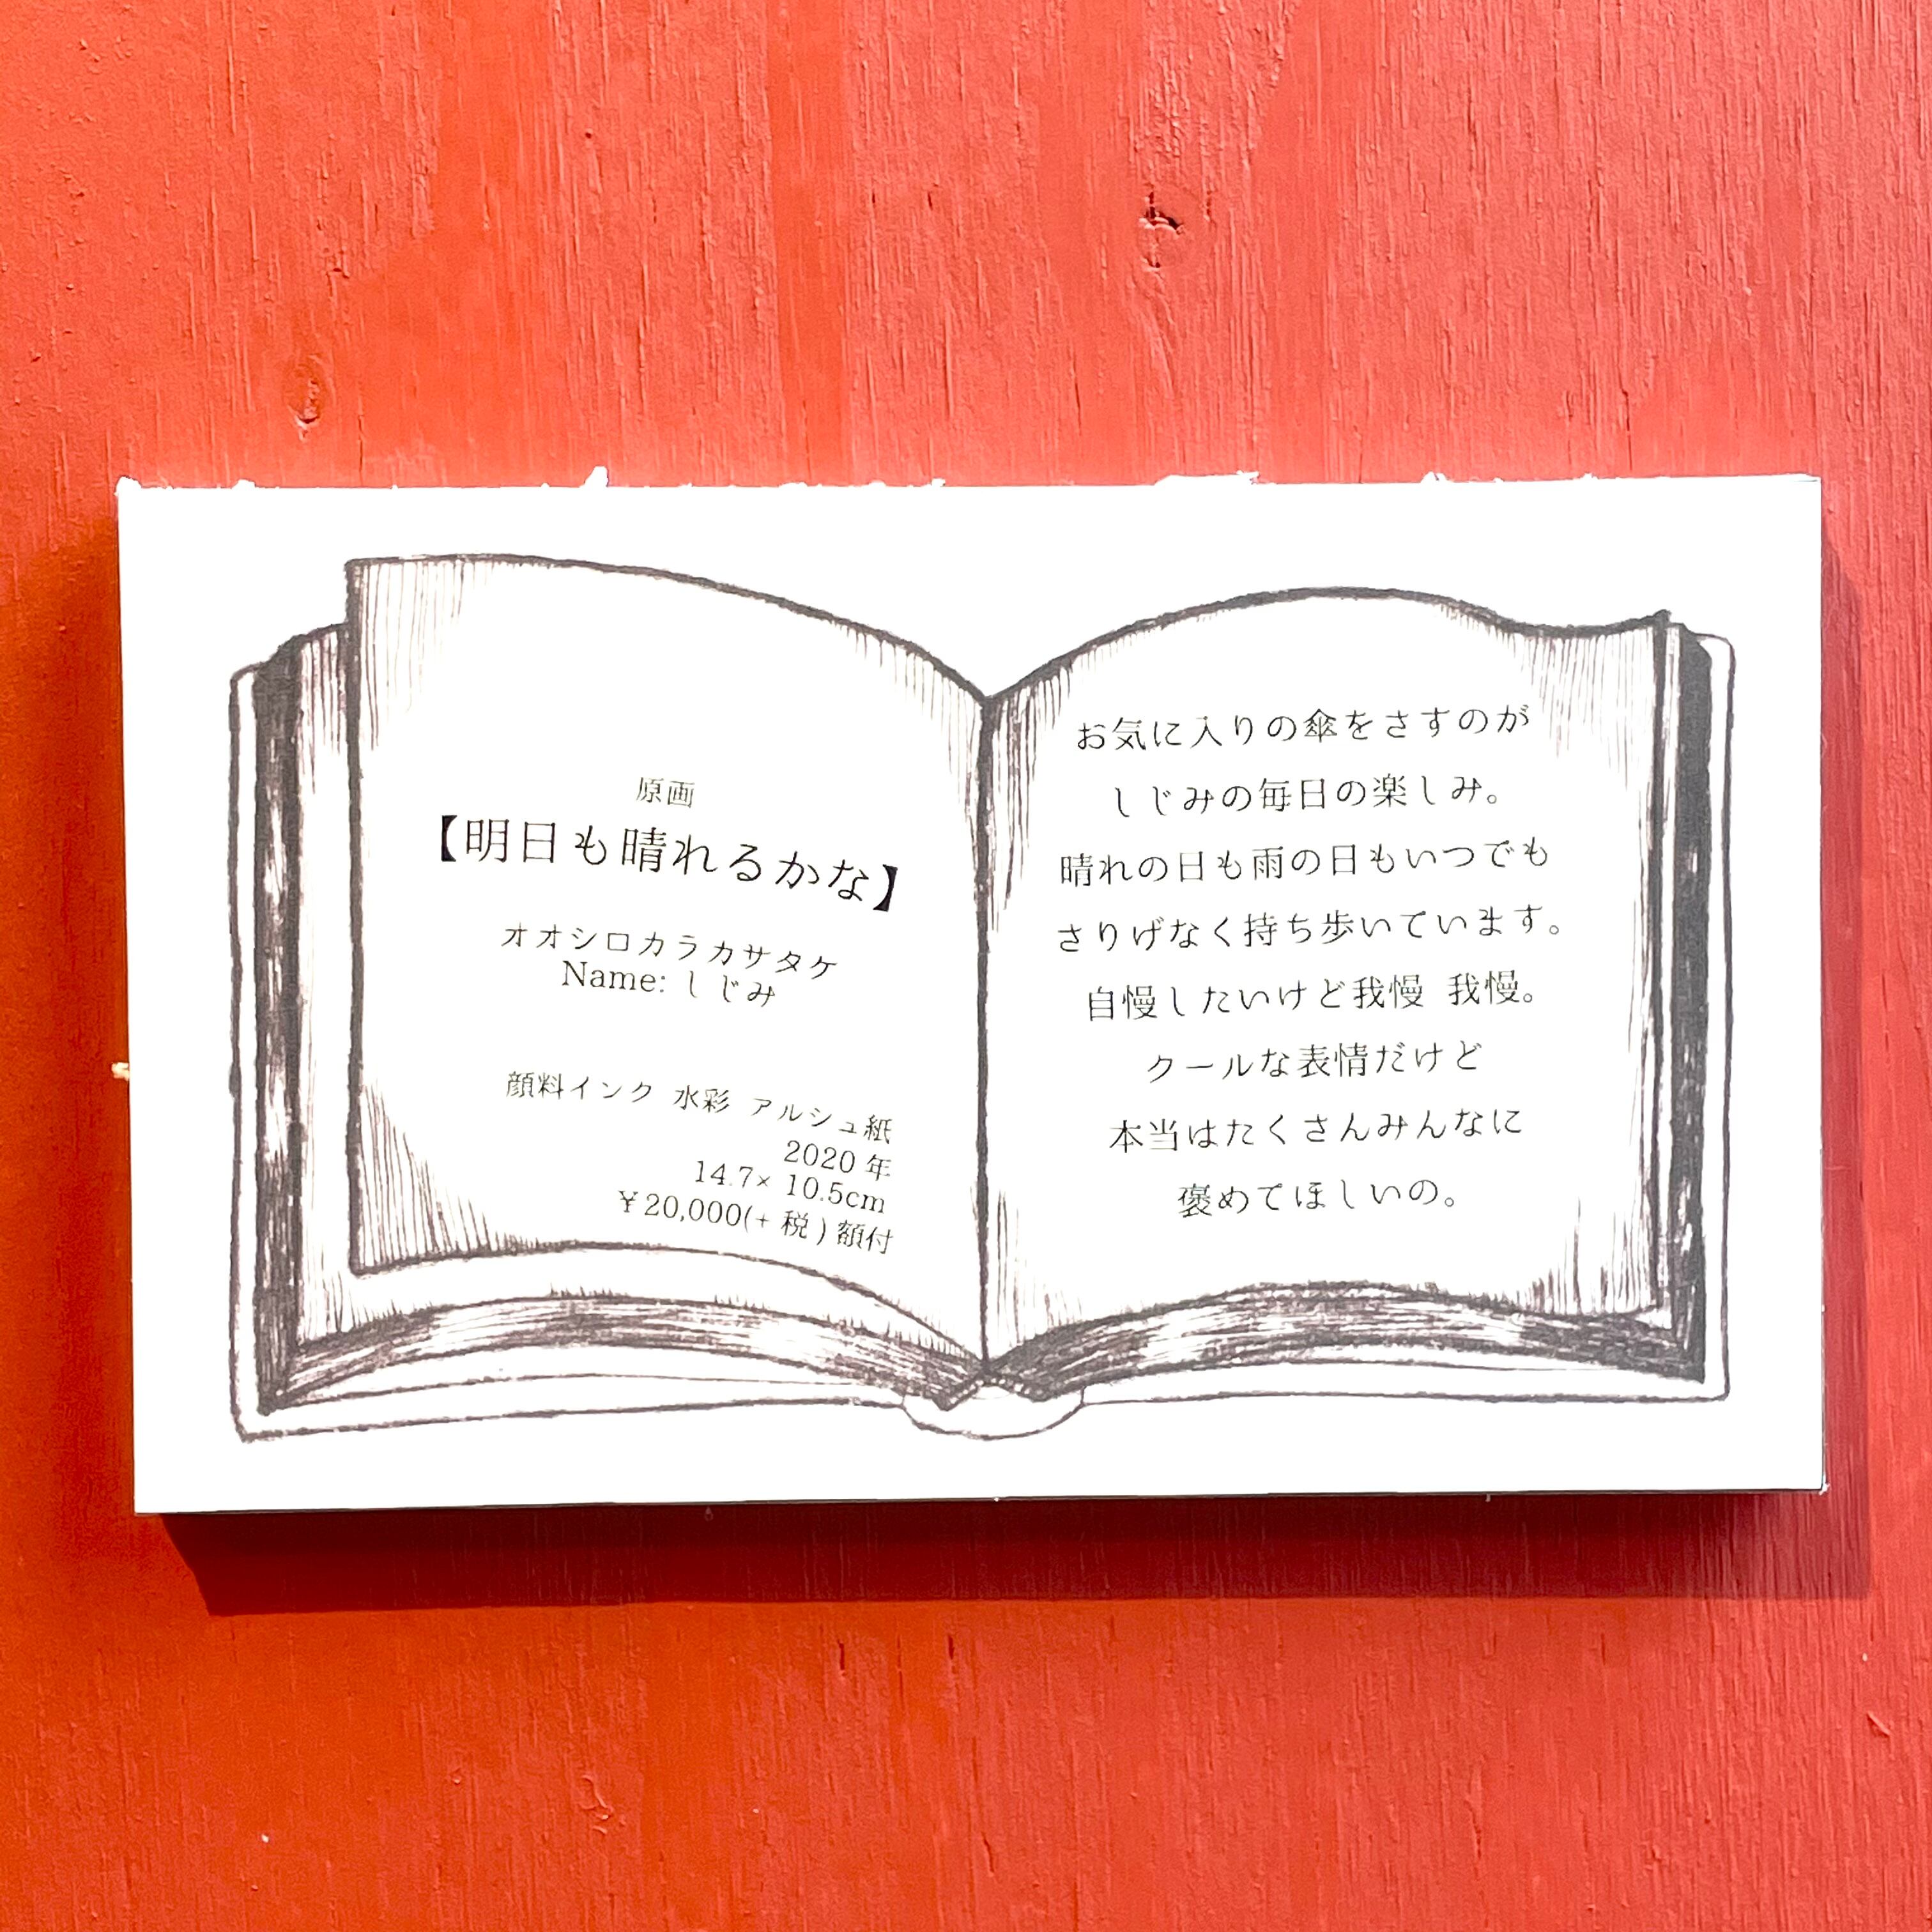 原画
【明日も晴れるかな】
オオシロカラカサタケ
Name: しじみ
顔料インク 水彩 アルシュ紙
2020 年
14.7× 10.5cm
¥20,000(+ 税) 額付
お気に入りの傘をさすのが
しじみの毎日の楽しみ。
晴れの日も雨の日もいつでも
さりげなく持ち歩いています。
自慢したいけど我慢 我慢。
クールな表情だけど
本当はたくさんみんなに
褒めてほしいの。